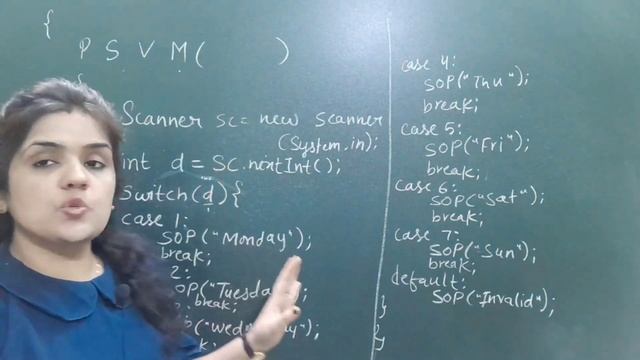 {
P S V M (      )
{
Scanner sc = new Scanner
(System.in);
int d = sc.nextInt();
switch(d){
case 1:
SOP("Monday");
break;
2:
SOP("Tuesday");
break;
case 4:
SOP("Thu");
break;
case 5:
SOP("Fri");
break;
case 6:
SOP("Sat");
break;
case 7:
SOP("Sun");
break;
default:
SOP("Invalid");
}
}